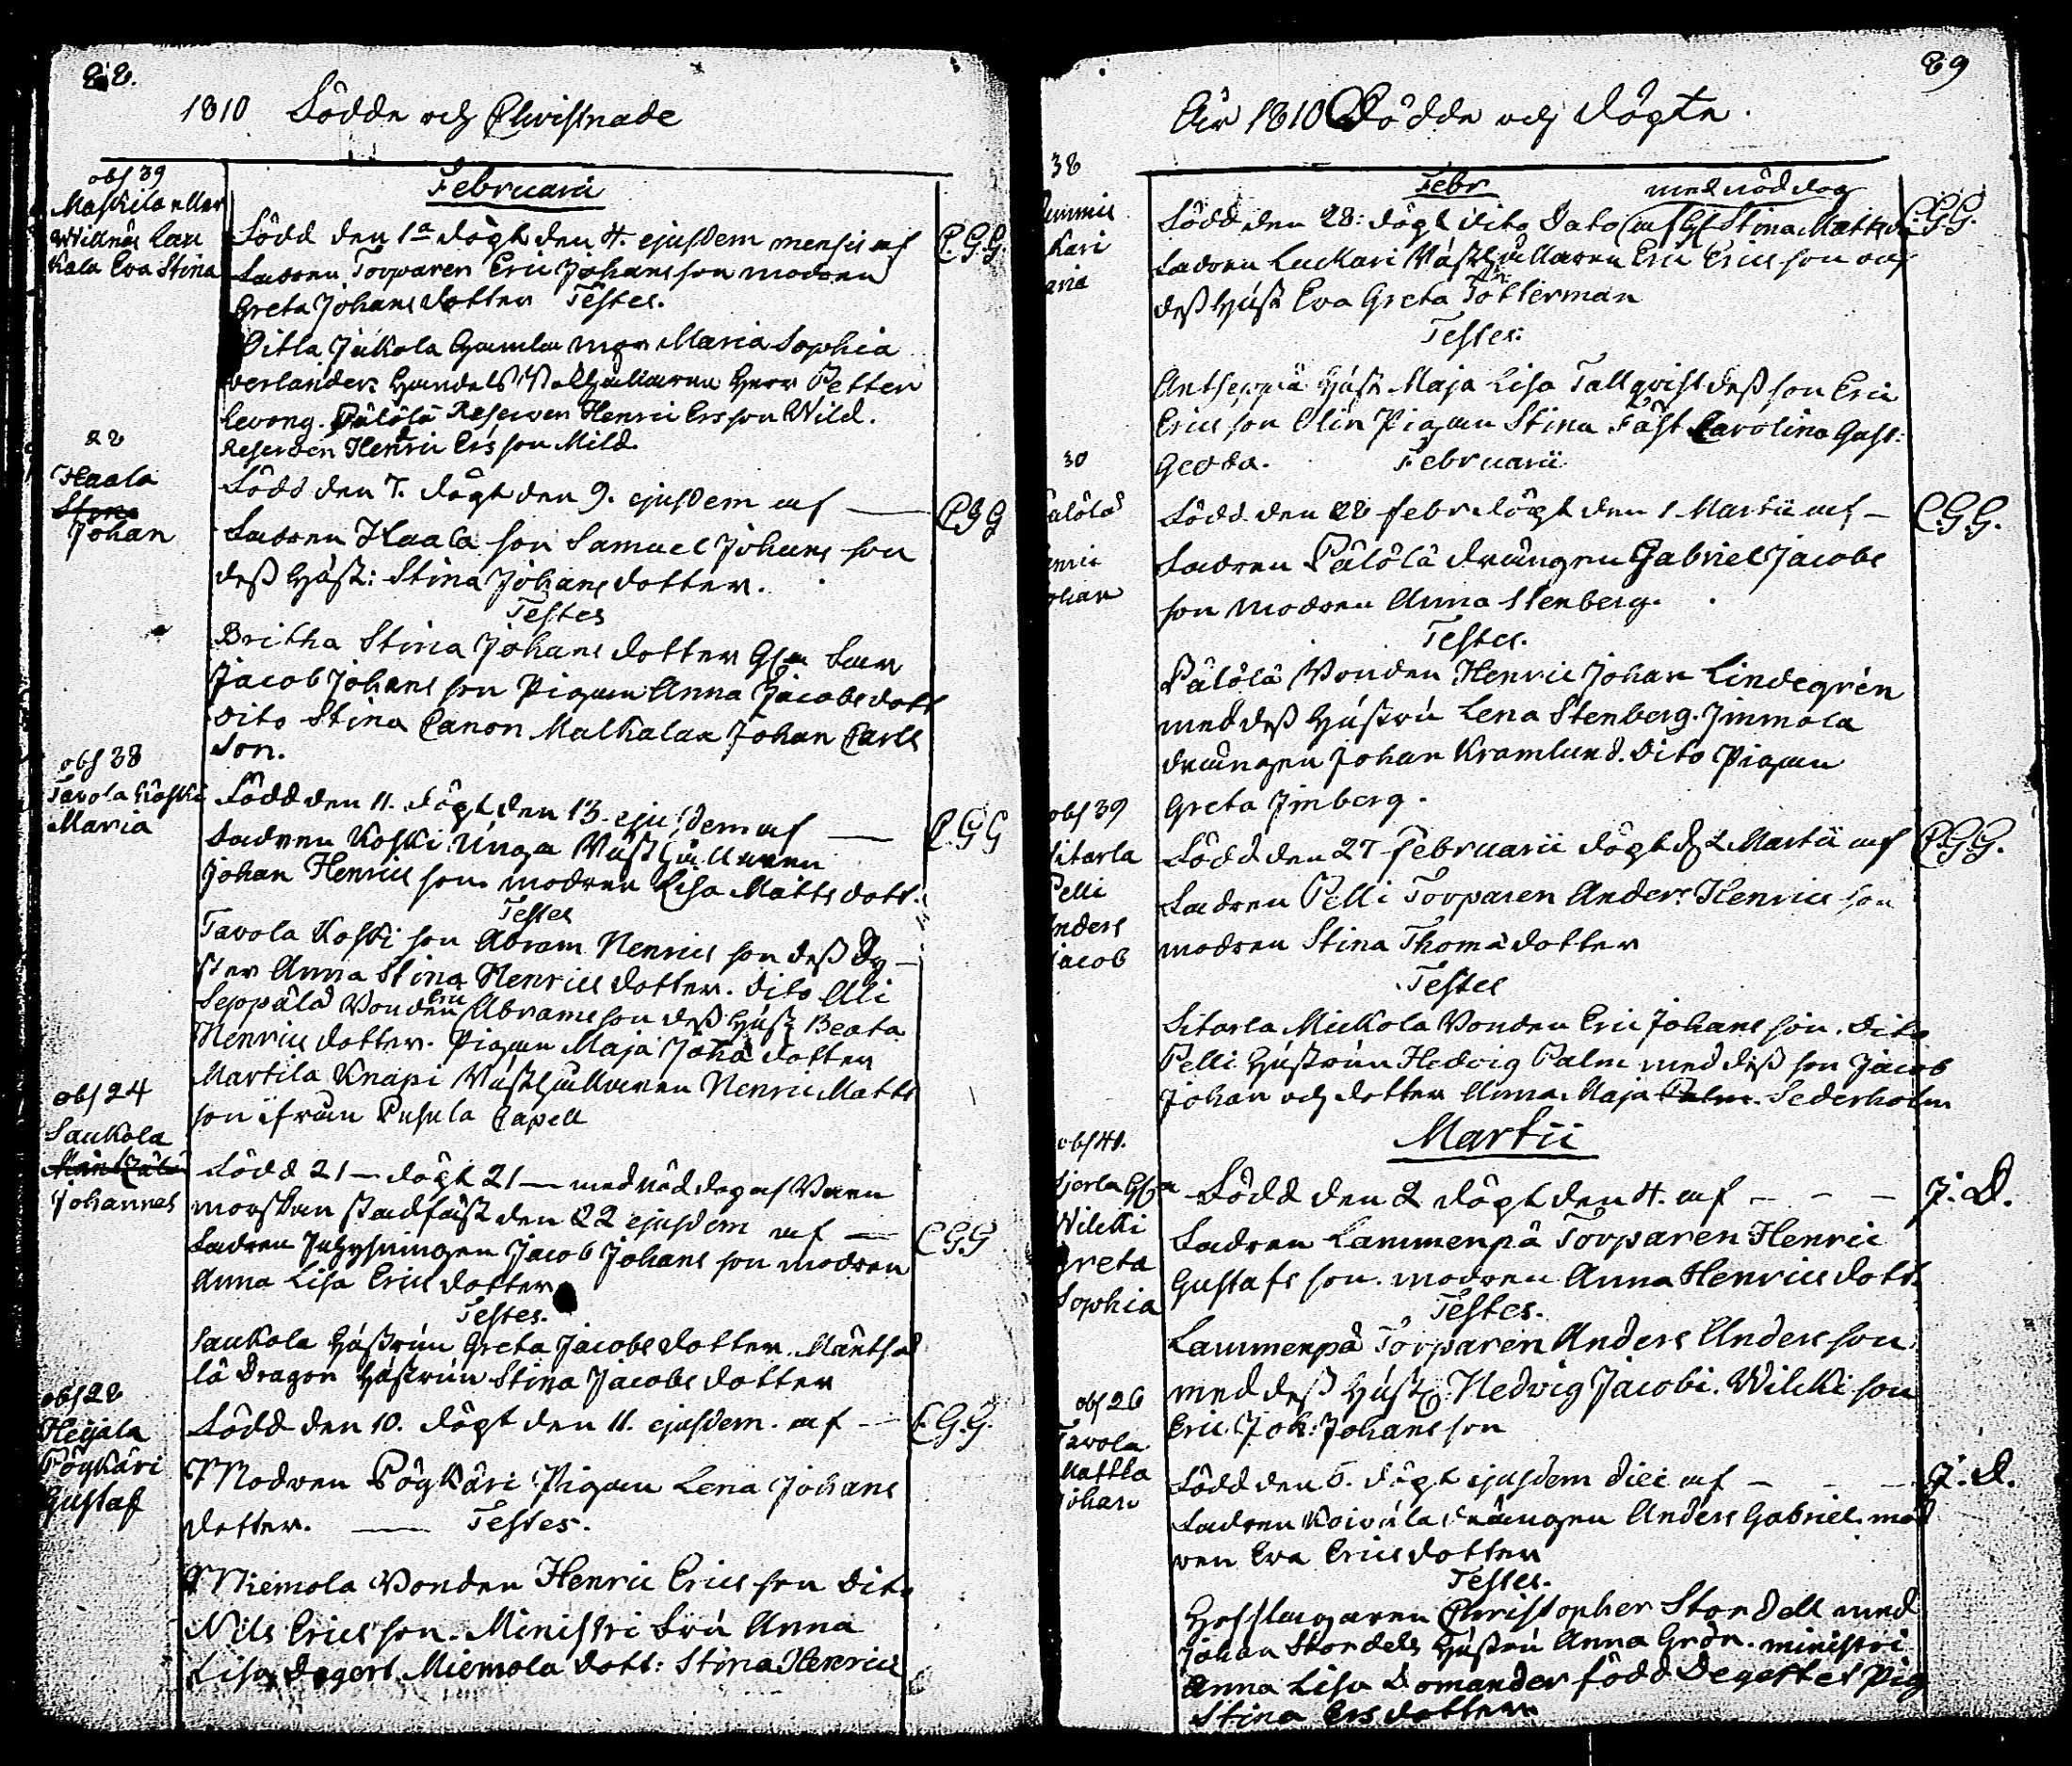 88.
1810 Födde och Christnade
obs 39
Maskila eller
Willnäs Lau
kala Eva Stina
Februarii
Född den 1a döpt den 4. ejusdem mensis af
Fadren Torparen Eric Johansson modren
Greta Johansdotter Testes.
C.G.G.
Ditla Jakola Gamla mor Maria Sophia
verlander. Handels Herr Petter
Levong. Pälölä Reserven Henric Ersson Wild.
Reserven Henric Ersson Mild.
28
Haala
Johan
Född den 7. döpt den 9. ejusdem af —
Fadren Haala son Samuel Johans son
dess Hust: Stina Johansdotter.
Testes
C.G.G
Britha Stina Johansdotter
Jacob Johans son Pigan Anna Jacobsdott
dito Stina Canon Malkalax Johan Carls
son.
obs 38
Tavola Koski
Maria
Född den 11. döpt den 13. ejusdem af —
Fadren Koski Unga Vasthållaren
Johan Henrics son. modren Lisa Mattsdott.
Testes
C.G.G
Tavola Koski son Abram Henrics son dess Sy-
ster Anna Stina Henricsdotter. dito Alli
Seppälä Bonden Eric Abrams son dess Hust Beata
Henricsdotter. Pigan Maja Joha dotter
Martila Knapi Vasthållaren Henric Matts
son ifrån Pusula Capell
obs 24
Saukola
Johannes
Född 21 — döpt 21 — med nöddop af Barn
morskan stadfäst den 22 ejusdem af —
Fadren Inhysningen Jacob Johans son modren
Anna Lisa Ericsdotter
Testes.
C.G.G
Saukola Hustrun Greta Jacobsdotter. Mäntsä
lä Dragon Hustrun Stina Jacobsdotter
obs 28
Heijala
Pöykäri
Gustaf
Född den 10. döpt den 11. ejusdem. af —
Modren Pöykäri Pigan Lena Johans
dotter. — Testes.
C.G.G.
Niemola Bonden Henric Erics son dito
Nils Erics son. Ministri Fru Anna
Lisa Degert Miemola dott: Stina Henrics
89
År 1810 Födde och döpte.
38
Kari
Febr
med nöddop
Född den 28: döpt dito Dato af Stina Mattsdr
Fadren Luckari Vasthållaren Eric Erics son och
dess Hust Eva Greta Totterman
Testes:
C.G.G.
Hust Maja Lisa Tallqvist dess son Eric
Erics son Olin Pigan Stina Fast Carolina Gust.
Gedda.
30
Johan
Februarii
Född den 28 febr döpt den 1 Martii af —
Fadren Pälölä drängen Gabriel Jacobs
son modren Anna Stenberg.
Testes.
C.G.G.
Pälölä Bonden Henric Johan Lindegrén
med dess Hustru Lena Stenberg. Immola
drängen Johan Kramlund. dito Pigan
Greta Imberg.
obs 39
Sitarla
Pelli
Anders
Jacob
Född den 27 Februarii döpt d. 2 Martii af
Fadren Pelli Torparen Anders Henrics son
modren Stina Thomadotter
Testes
C.G.G.
Sitarla Mickola Bonden Eric Johans son. dito
Pelli Hustrun Hedvig Palm med dess son Jacob
Johan och dotter Anna Maja Palm. Sederholm
Martii
obs 41.
Wilcki
Greta
Sophia
Född den 2 döpt den 4. af — — —
Fadren Lammenpä Torparen Henric
Gustafs son. modren Anna Henricsdott.
Testes.
J.D.
Lammenpä Torparen Anders Anders son
med dess Hust: Hedvig Jacobi. Wilcki son
Eric. Joh: Johans son
obs 26
Tavola
Mattla
Johan
Född den 5. döpt ejusdem diei af — — —
Fadren Koivula drängen Anders Gabriel. mod
ren Eva Ericsdotter
Testes.
J.D.
Hofslagaren Christopher Stordell med
Johan Stordels Hustru Anna Grön. ministri
Anna Lisa Domander född Degettel Pig
Stina Ersdotter